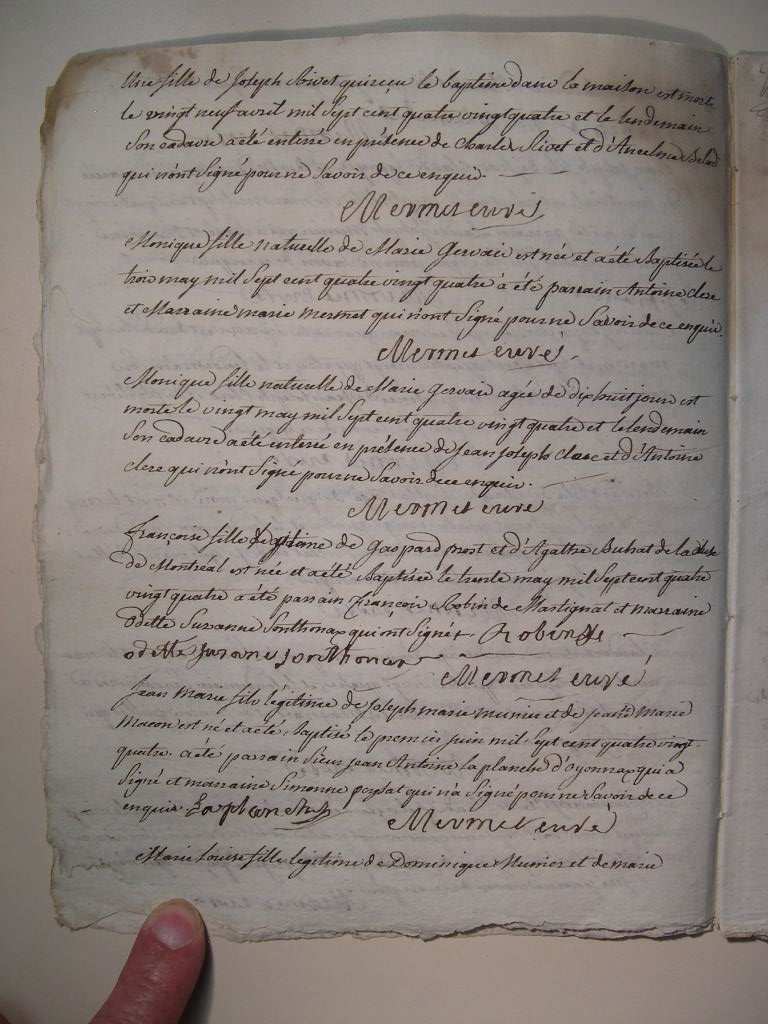 Une fille de Joseph Rivet qui reçu le baptême dans la maison est morte
le vingt neuf avril mil Sept cent quatre vingt quatre et le lendemain
Son cadavre a été enterré en présence de Charles Rivet et d'Ancelme
qui n'ont Signé pour ne Savoir de ce enquis.
Mermet curé
Monique fille naturelle de Marie Gervais est née et a été Baptisée le
trois may mil Sept cent quatre vingt quatre a été parrain Antoine clerc
et Marraine marie mermet qui n'ont Signé pour ne Savoir de ce enquis.
Mermet curé.
Monique fille naturelle de Marie Gervais agée de dix huit jours est
morte le vingt may mil Sept cent quatre vingt quatre et le lendemain
Son cadavre a été enterré en présence de Jean Joseph Clerc et d'Antoine
clerc qui n'ont Signé pour ne Savoir de ce enquis.
Mermet curé
françoise fille légitime de gaspard prost et d'Agathe de la
de Montréal est née et a été Baptisée le trente may mil Sept cent quatre
vingt quatre a été parrain françois Robin de Martignat et marraine
Odette Suzanne Sonthonax qui ont Signé. Robin
odette Suzanne Sonthonax
Mermet curé
Jean Marie fils légitime de Joseph marie munier et de Marie
Macon est né et a été Baptisé le premier juin mil Sept cent quatre vingt
quatre. a été parrain Sieur jean Antoine la planche d'oyonnax qui a
Signé et marraine Simonne poysat qui n'a Signé pour ne Savoir de ce
enquis. Laplanche
Mermet curé
Marie Louise fille légitime de Dominique et de marie